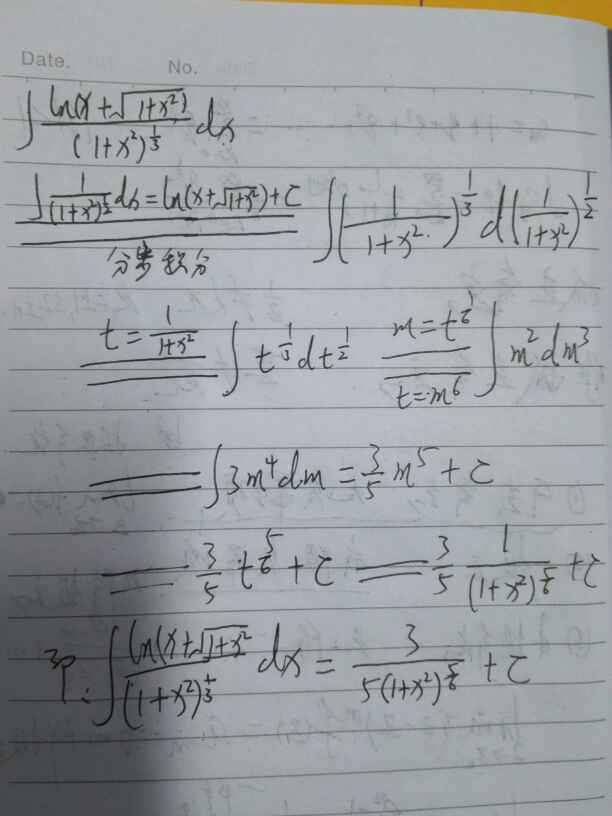 Date. No.
∫ ln(x+√(1+x²)) / (1+x²)^(1/3) dx
∫ 1/(1+x²)^(1/2) dx = ln(x+√(1+x²))+C ∫ (1/(1+x²))^(1/3) d(1/(1+x²))^(1/2)
分步积分
t = 1/(1+x²) ∫ t^(1/3) dt^(1/2) m = t^(1/6) t = m^6 ∫ m² dm³
∫ 3m⁴ dm = 3/5 m⁵ + C
3/5 t^(5/6) + C = 3/5 1/(1+x²)^(5/6) + C
即: ∫ ln(x+√(1+x²)) / (1+x²)^(1/3) dx = 3 / 5(1+x²)^(5/6) + C